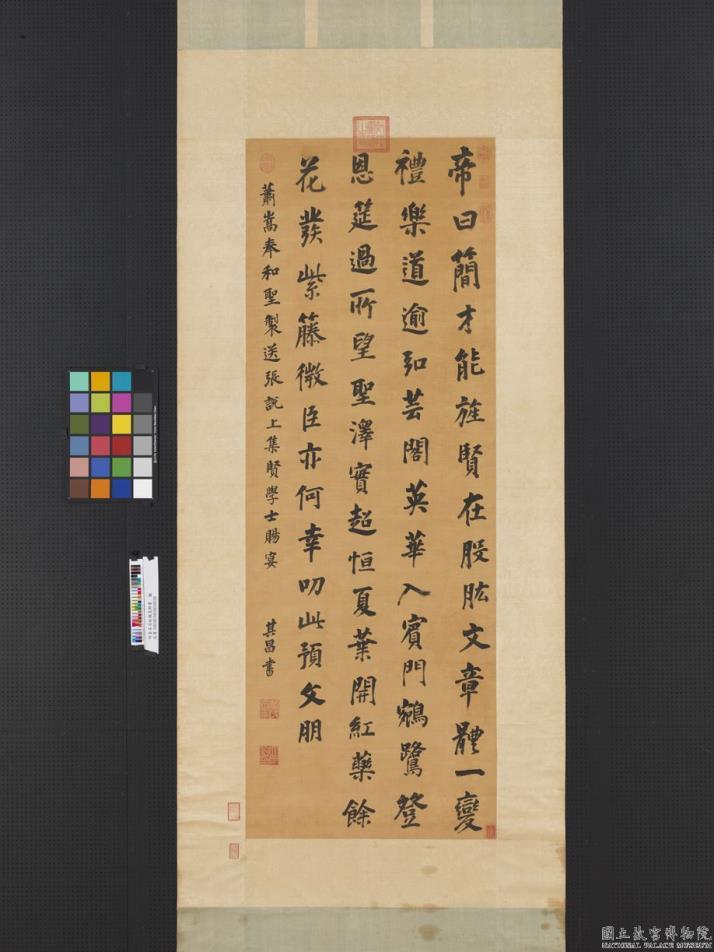 帝曰簡才能旌賢在股肱文章體一變
禮樂道逾弘芸閣英華入賓門鵷鷺登
恩筵過所望聖澤實超恒夏葉開紅藥餘
花發紫藤微臣亦何幸叨此預文朋
蕭嵩奉和聖製送張說上集賢學士賜宴
其昌書
國立故宮博物院
NATIONAL PALACE MUSEUM